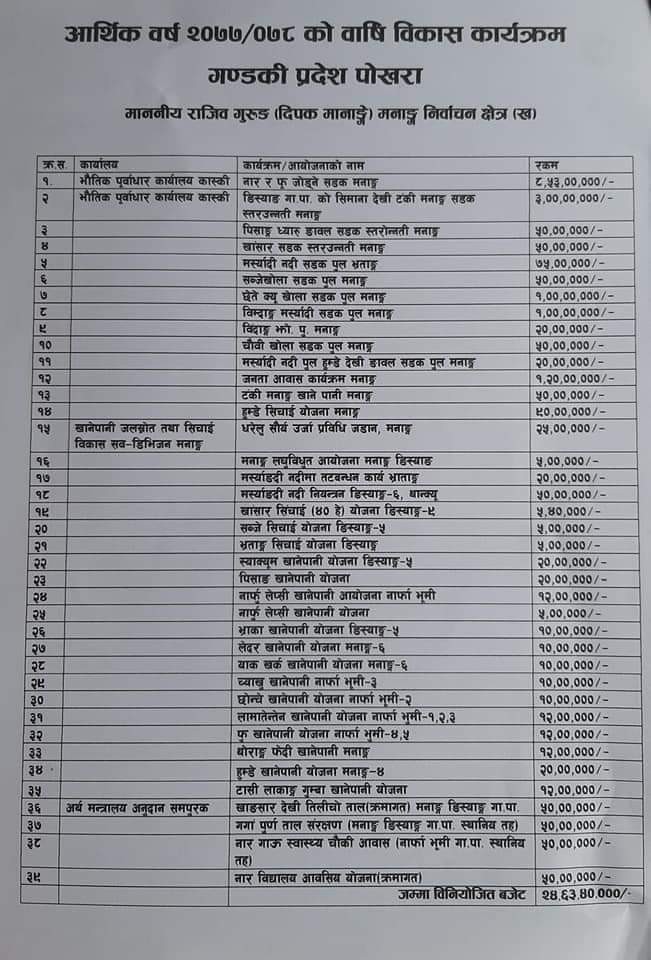 आर्थिक वर्ष २०७७/०७८ को वार्षि विकास कार्यक्रम
गण्डकी प्रदेश पोखरा
माननीय राजिव गुरुङ (दिपक मानाङ्गे) मनाङ्ग निर्वाचन क्षेत्र (ख)
क्र.स. कार्यालय कार्यक्रम/आयोजनाको नाम रकम
१. भौतिक पूर्वाधार कार्यालय कास्की नार र फू जोड्ने सडक मनाङ्ग ८,५३,००,०००/-
२ भौतिक पूर्वाधार कार्यालय कास्की ङिस्याङ गा.पा. को सिमाना देखी टंकी मनाङ्ग सडक
स्तरउन्नती मनाङ्ग ३,००,००,०००/-
३ पिसाङ्ग ध्यारु ङावल सडक स्तरोन्नती मनाङ्ग ५०,००,०००/-
४ खांसार सडक स्तरउन्नती मनाङ्ग ५०,००,०००/-
५ मर्स्यादी नदी सडक पुल भ्रताङ्ग ७५,००,०००/-
६ सब्जेखोला सडक पुल मनाङ्ग ५०,००,०००/-
७ छेते क्यू खोला सडक पुल मनाङ्ग १,००,००,०००/-
८ विम्दाङ्ग मर्स्यादी सडक पुल मनाङ्ग १,००,००,०००/-
९ विंदाङ्ग झो. पु. मनाङ्ग २०,००,०००/-
१० चौवी खोला सडक पुल मनाङ्ग ५०,००,०००/-
११ मर्स्यादी नदी पुल हुम्डे देखी ङावल सडक पुल मनाङ्ग २०,००,०००/-
१२ जनता आवास कार्यक्रम मनाङ्ग १,२०,००,०००/-
१३ टंकी मनाङ्ग खाने पानी मनाङ्ग ५०,००,०००/-
१४ हुम्डे सिचाई योजना मनाङ्ग ९०,००,०००/-
१५ खानेपानी जलस्रोत तथा सिचाई
विकास सव-डिभिजन मनाङ्ग धरेलु सौर्य उर्जा प्रविधि जडान, मनाङ्ग २५,००,०००/-
१६ मनाङ्ग लघुविधुत आयोजना मनाङ्ग ङिस्याङ ५,००,०००/-
१७ मर्स्याङदी नदीमा तटबन्धन कार्य भ्राताङ्ग २०,००,०००/-
१८ मर्स्याङदी नदी नियन्त्रन ङिस्याङ्ग-६, थान्क्यू ५०,००,०००/-
१९ खांसार सिंचाई (४० हे) योजना ङिस्याङ्ग-९ ५,४०,०००/-
२० सब्जे सिचाई योजना ङिस्याङ्ग-५ ५,००,०००/-
२१ भ्रताङ्ग सिचाई योजना ङिस्याङ्ग ५,००,०००/-
२२ स्याक्यूम खानेपानी योजना ङिस्याङ्ग-५ २०,००,०००/-
२३ पिसाङ खानेपानी योजना २०,००,०००/-
२४ नार्फु लेप्सी खानेपानी आयोजना नार्फा भूमी १२,००,०००/-
२५ नार्फु लेप्सी खानेपानी योजना ५,००,०००/-
२६ भ्राका खानेपानी योजना ङिस्याङ्ग-५ १०,००,०००/-
२७ लेदर खानेपानी योजना मनाङ्ग-६ १०,००,०००/-
२८ याक खर्क खानेपानी योजना मनाङ्ग-६ १०,००,०००/-
२९ च्याखु खानेपानी योजना नार्फा भूमी-३ १०,००,०००/-
३० छोन्चे खानेपानी योजना नार्फा भूमी-२ १०,००,०००/-
३१ लामातेन्तेन खानेपानी योजना नार्फा भुमी-१,२,३ १२,००,०००/-
३२ फु खानेपानी योजना नार्फा भुमी-४,५ १२,००,०००/-
३३ थोराङ्ग फेदी खानेपानी मनाङ्ग १२,००,०००/-
३४ हुम्डे खानेपानी योजना मनाङ्ग-४ २०,००,०००/-
३५ टासी लाकाङ्ग गुम्बा खानेपानी योजना १२,००,०००/-
३६ अर्थ मन्त्रालय अनुदान समपुरक खाङसार देखी तिलीचो ताल(क्रमागत) मनाङ्ग ङिस्याङ्ग गा.पा. ५०,००,०००/-
३७ गंगा पुर्ण ताल संरक्षण (मनाङ्ग ङिस्याङ्ग गा.पा. स्थानिय तह) ५०,००,०००/-
३८ नार गाऊ स्वास्थ्य चौकी आवास (नार्फा भूमी गा.पा. स्थानिय
तह) ५०,००,०००/-
३९ नार विद्यालय आवसिय योजना(क्रमागत) ५०,००,०००/-
जम्मा विनियोजित बजेट २४,६३,४०,०००/-